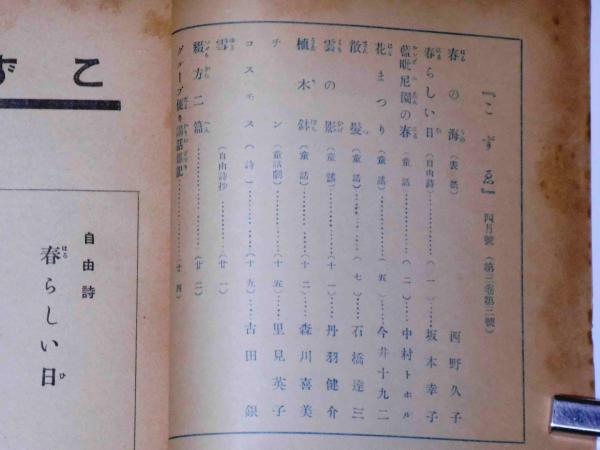 『こずゑ』 四月號 (第三卷第三號)
春の海 (表紙) 西野久子
春らしい日 (自由詩) (一) 坂本幸子
藍毗尼園の春 (童話) (二) 中村トホル
花まつり (童謠) (五) 今井十九二
散髮 (童話) (七) 石橋達三
雲の影 (童謠) (十一) 丹羽健介
植木鉢 (童話) (十二) 森川喜美
チン (童話劇) (十五) 里見英子
コスモス (詩) (十九) 古田銀
雪 (自由詩抄) (廿一)
綴方二篇 (廿二)
グループ便り (廿四)
こず
自由詩
春らしい日